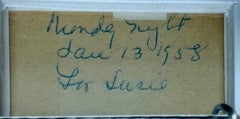 Monday night
Jan 13 1958
For Susie